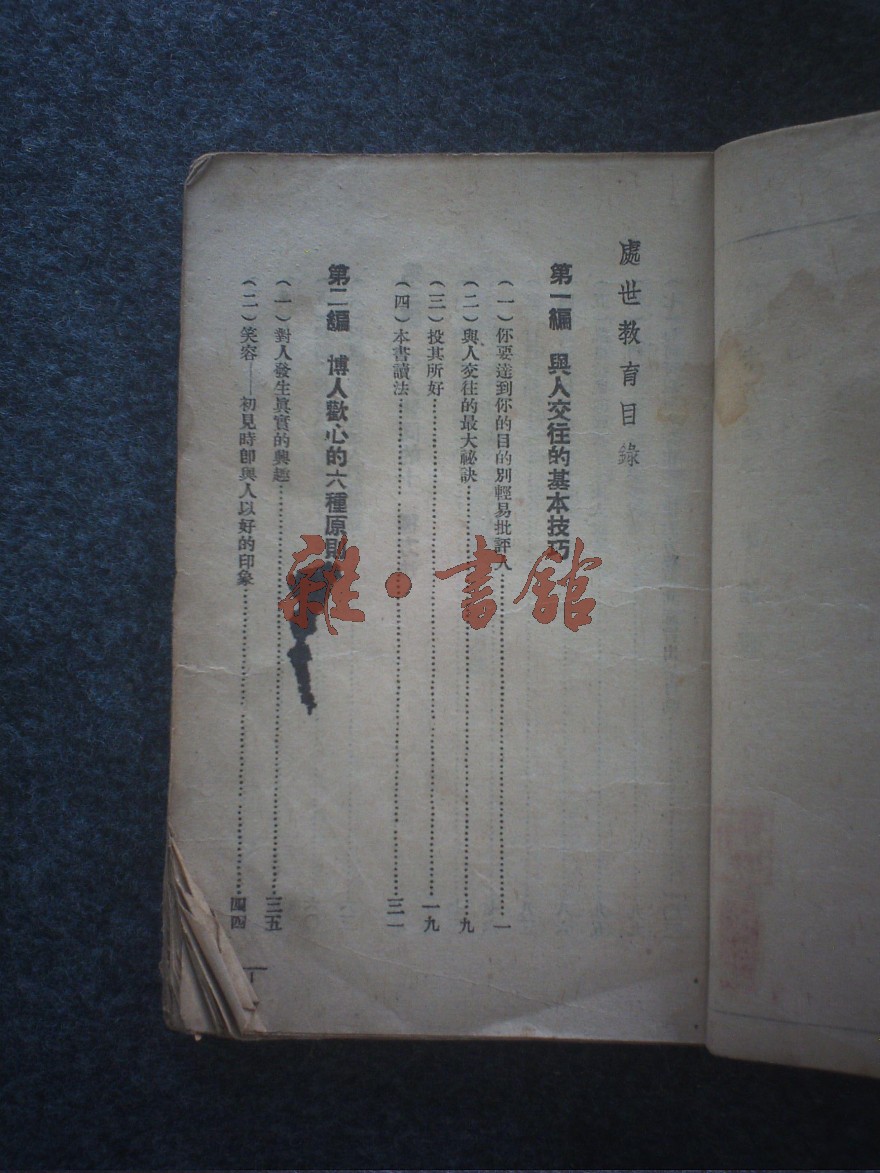 處世教育目錄
第一編 與人交往的基本技巧
(一)你要達到你的目的別輕易批評人……一
(二)與人交往的最大祕訣……九
(三)投其所好……一九
(四)本書讀法……三一
第二編 博人歡心的六種原則
(一)對人發生眞實的興趣……三五
(二)笑容——初見時卽與人以好的印象……四四
一
雜·書館